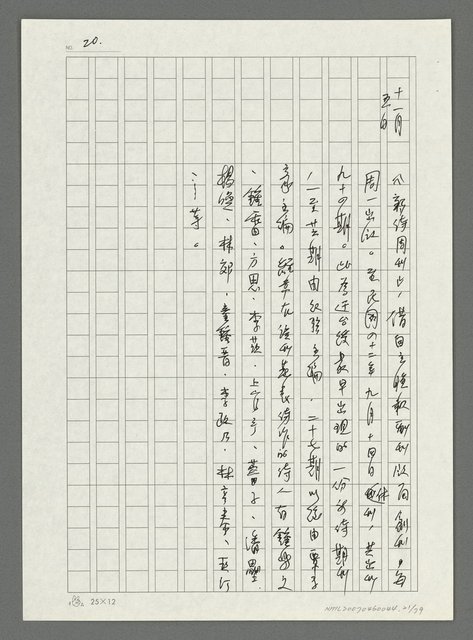 NO. 20.
十一月
五日
《新詩周刊》,借自立晚報副刊版面創刊,每
周一出版。至民國四十二年九月十四日休刊,共出刊
九十四期。此為遷台後最早出現的一份新詩期刊
,一至廿六期由紀弦主編,二十七期以後由覃子
豪主編。經常在該刊發表詩作的詩人有鍾鼎文
、鍾雷、方思、李莎、上官予、蓉子、潘壘、
楊喚、林郊、童鍾晉、李政乃、林亨泰、亞汀
……等。
25×12
NMTL20070460044 21/79